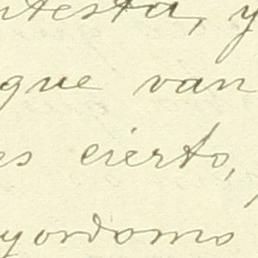 ntesta, y
que van
es cierto,
yordomo